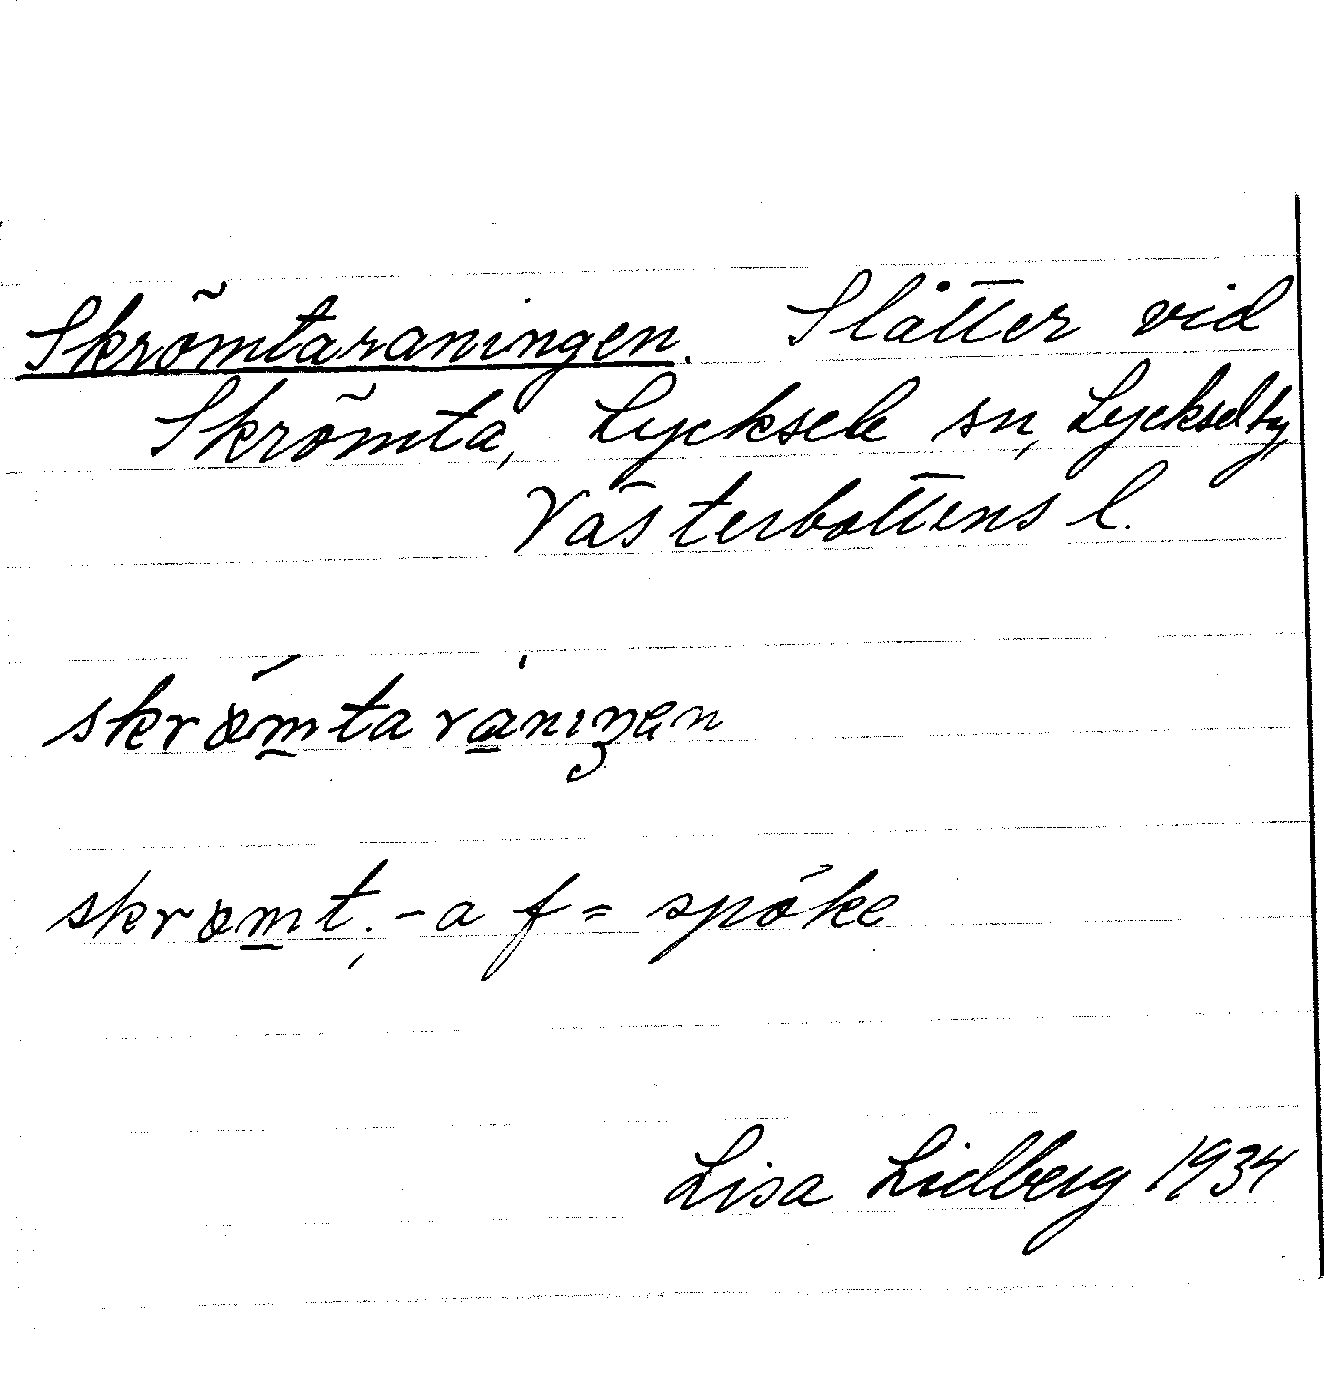 Skrömtaraningen. Slåtter vid
Skrömta, Lycksele sn, Lycksel by,
Västerbottens l.
skrœ́m̲ta ra̲niŋen
skrœm̲t. -a f = spöke
Lisa Lidberg 1934